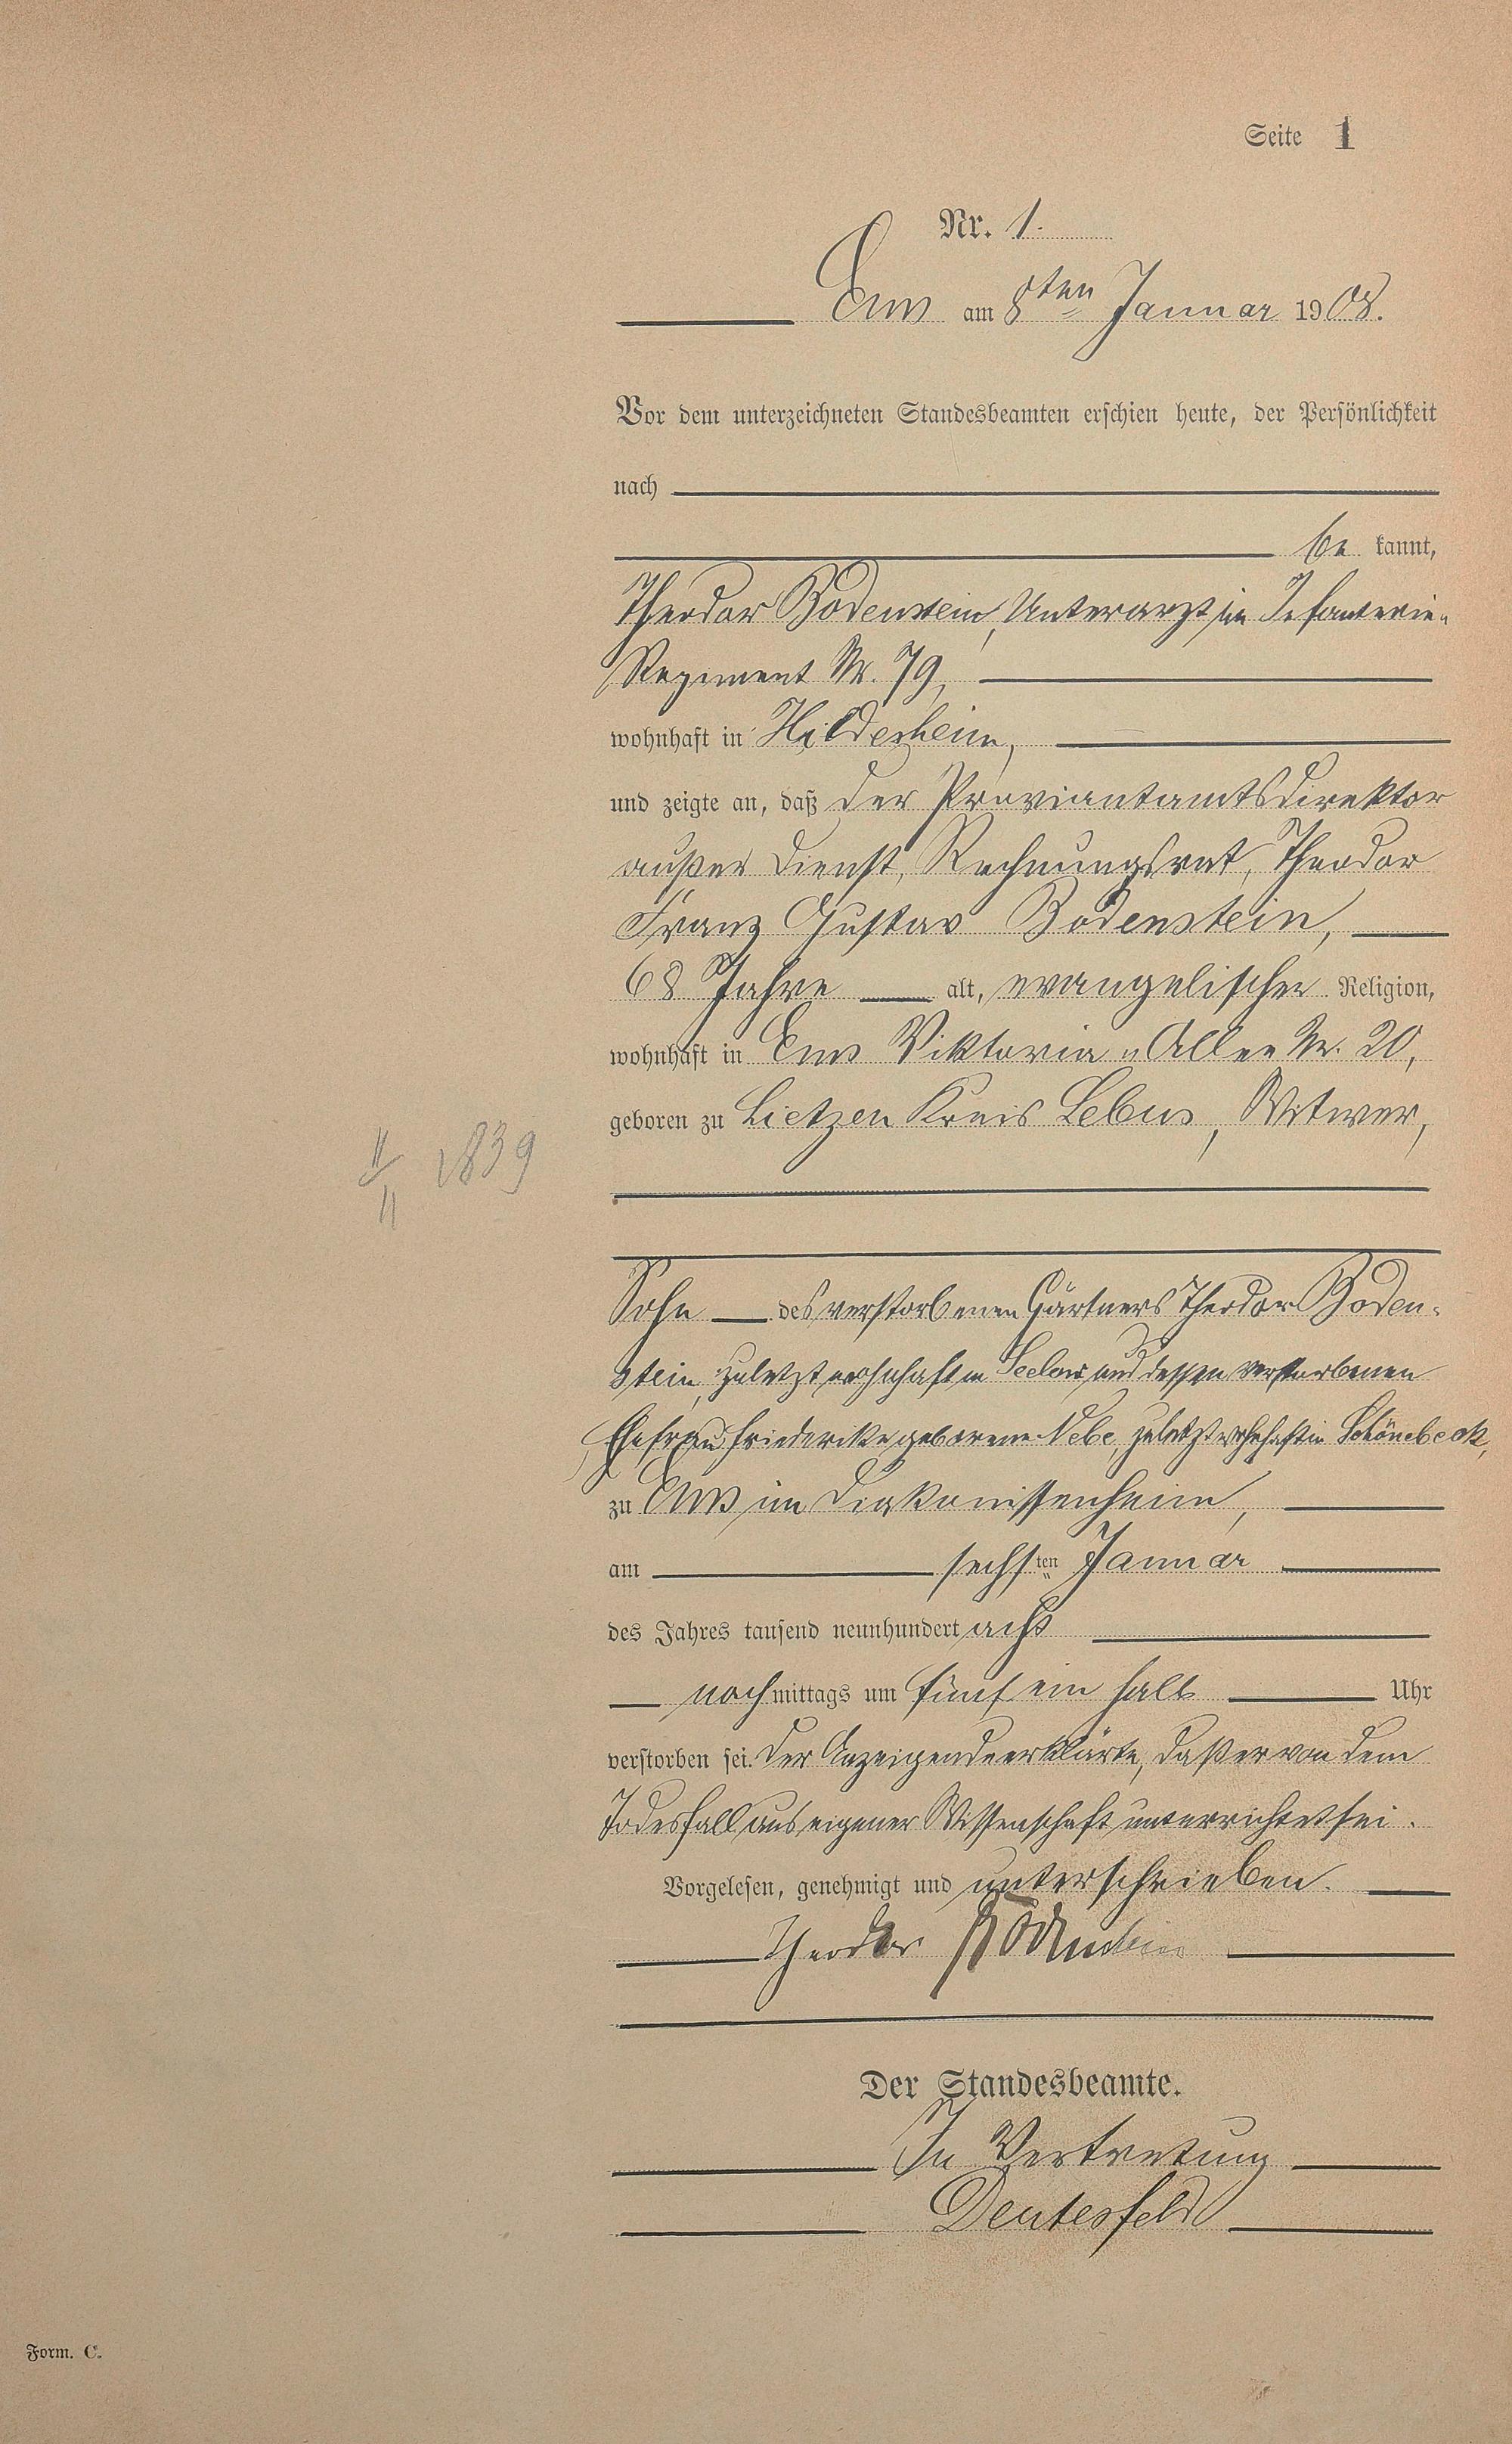 Seite 1
Nr. 1.
Ems am 8ten Januar 1908.
Vor dem unterzeichneten Standesbeamten erschien heute, der Persönlichkeit
nach
be kannt,
Theodor Bodenstein, Unterarzt im Infanterie-
Regiment Nr. 79,
wohnhaft in Hildesheim,
und zeigte an, daß der Proviantamtsdirektor
außer Dienst, Rechnungsrat, Theodor
Franz Gustav Bodenstein,
68 Jahre alt, evangelischer Religion,
wohnhaft in Ems Viktoria-Allee Nr. 20,
geboren zu Lietzen Kreis Lebus, Witwer,
11/11 1839
Sohn des verstorbenen Gärtners Theodor Boden-
stein, zuletzt wohnhaft in Seelow und dessen verstorbenen
Ehefrau Friederike geborene Nebe, zuletzt wohnhaft in Schönebeck,
zu Ems im Diakonissenheim,
am sechsten Januar
des Jahres tausend neunhundert acht
nachmittags um fünf ein halb Uhr
verstorben sei. Der Anzeigende erklärte, daß er von dem
Todesfall aus eigener Wissenschaft unterrichtet sei.
Vorgelesen, genehmigt und unterschrieben.
Theodor Bodenstein
Der Standesbeamte.
In Vertretung
Deutesfeld
Form. C.